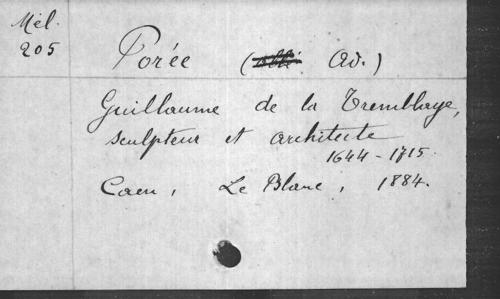 Mél.
205
Porée (Ad.)
Guillaume de la Tremblaye,
sculpteur et architecte
1644-1715
Caen, Le Blanc, 1884.